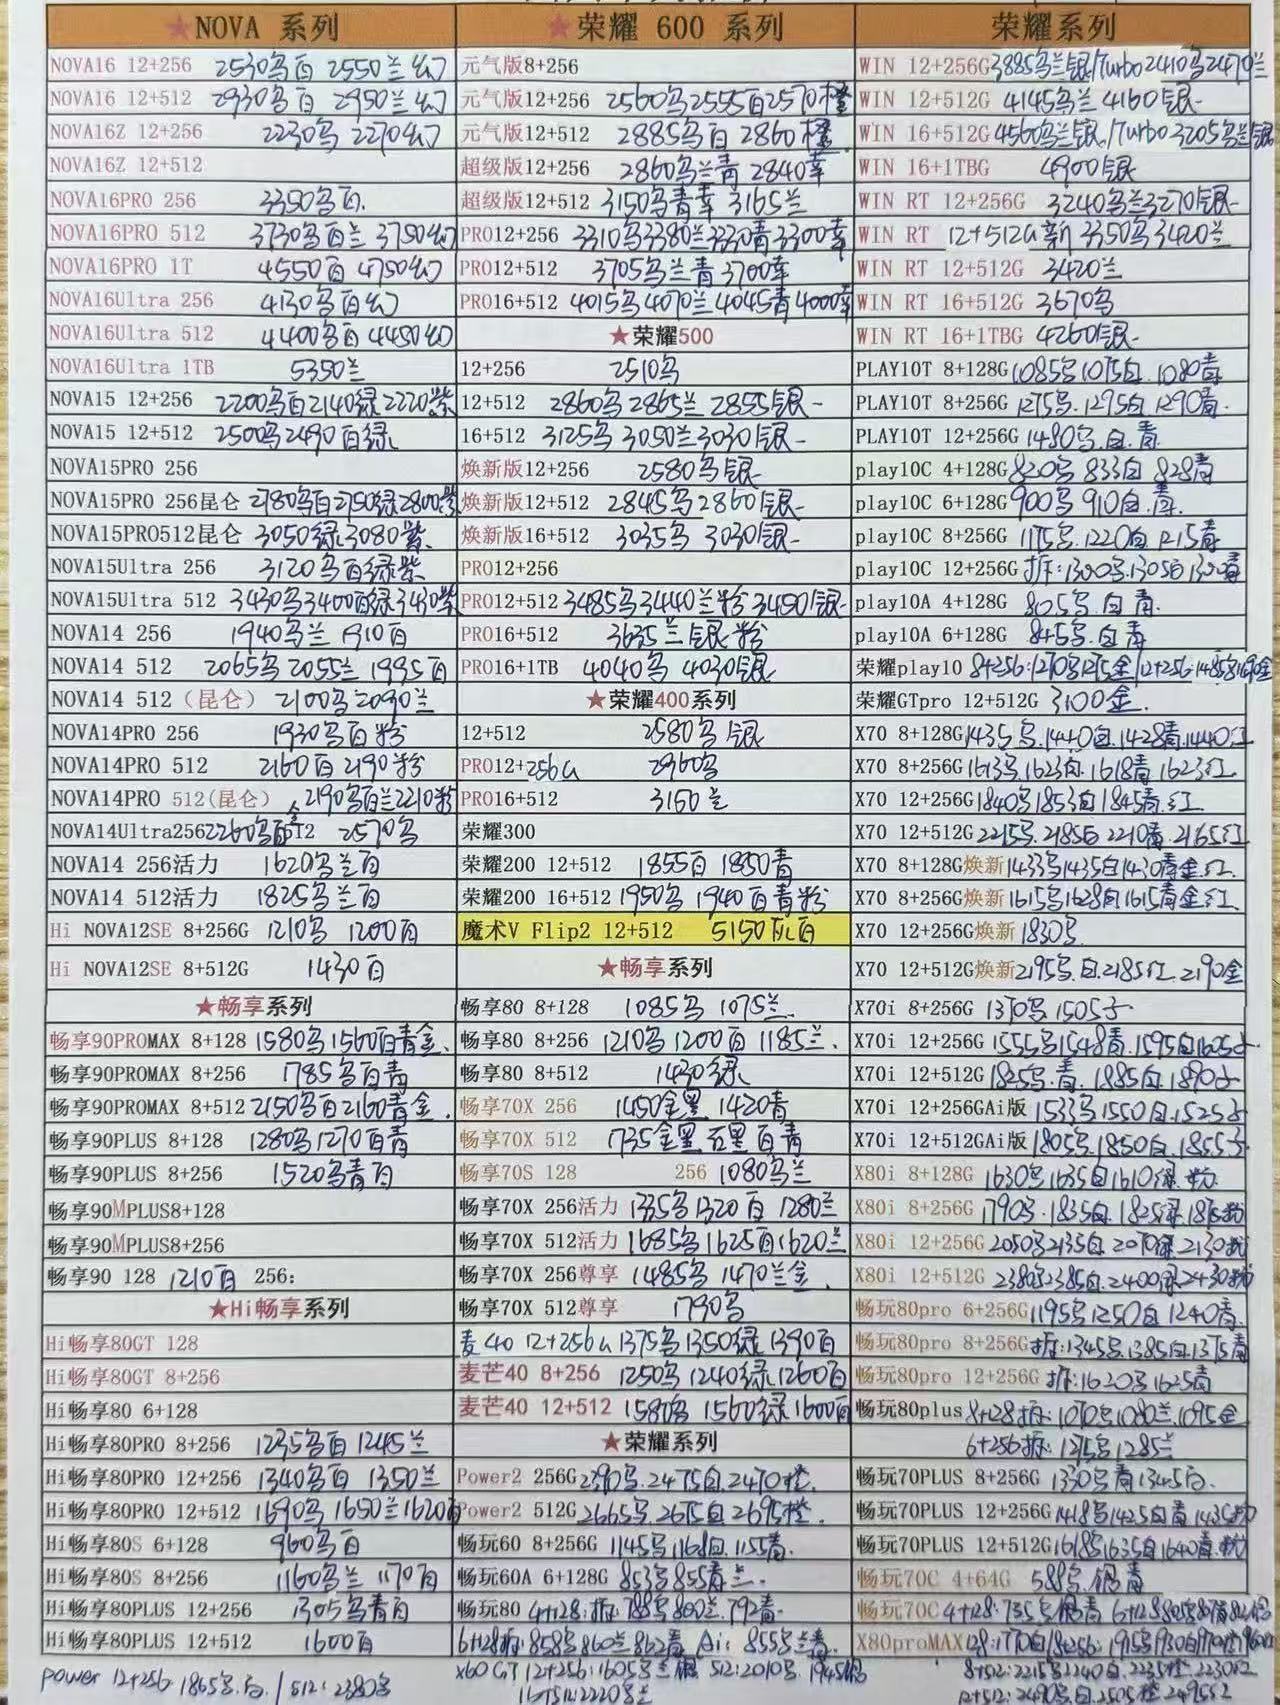 ★NOVA 系列
NOVA16 12+256 2530乌白 2550兰幻
NOVA16 12+512 2930乌白 2950兰幻
NOVA16Z 12+256 2230乌 2270幻
NOVA16Z 12+512
NOVA16PRO 256 3350乌白.
NOVA16PRO 512 3730乌白兰 3750幻
NOVA16PRO 1T 4550白 4750幻
NOVA16Ultra 256 4130乌白幻
NOVA16Ultra 512 4400乌白 4450幻
NOVA16Ultra 1TB 5350兰
NOVA15 12+256 2200乌白2140绿2220紫
NOVA15 12+512 2500乌2490白绿
NOVA15PRO 256
NOVA15PRO 256昆仑 2780乌白2750绿2800紫
NOVA15PRO512昆仑 3050绿3080紫.
NOVA15Ultra 256 3120乌白绿紫
NOVA15Ultra 512 3430乌3400白绿3430紫
NOVA14 256 1940乌兰 1910白
NOVA14 512 2065乌 2055兰 1995白
NOVA14 512（昆仑） 2100乌2090兰
NOVA14PRO 256 1930乌白粉
NOVA14PRO 512 2160白 2190粉
NOVA14PRO 512(昆仑) 2190乌白兰2210粉
NOVA14Ultra256 2260乌白金 512 2570乌
NOVA14 256活力 1620乌兰白
NOVA14 512活力 1825乌兰白
Hi NOVA12SE 8+256G 1210乌 1200白
Hi NOVA12SE 8+512G 1430白
★畅享系列
畅享90PROMAX 8+128 1580乌1560白青金.
畅享90PROMAX 8+256 1785乌白青
畅享90PROMAX 8+512 2150乌白2160青金.
畅享90PLUS 8+128 1280乌1270白青
畅享90PLUS 8+256 1520乌青白
畅享90MPLUS8+128
畅享90MPLUS8+256
畅享90 128 1210白 256:
★Hi畅享系列
Hi畅享80GT 128
Hi畅享80GT 8+256
Hi畅享80 6+128
Hi畅享80PRO 8+256 1235乌白 1245兰
Hi畅享80PRO 12+256 1340乌白 1350兰
Hi畅享80PRO 12+512 1690乌 1650兰1620白
Hi畅享80S 6+128 960乌白
Hi畅享80S 8+256 1160乌兰 1170白
Hi畅享80PLUS 12+256 1305乌青白
Hi畅享80PLUS 12+512 1600白
power 12+256 1865乌.白 / 512: 2380乌
★荣耀 600 系列
元气版8+256
元气版12+256 2560乌2555白2570橙
元气版12+512 2885乌白 2860橙
超级版12+256 2860乌兰青 2840幸
超级版12+512 3150乌青幸 3165兰
PRO12+256 3310乌3380兰3330青3300幸
PRO12+512 3705乌兰青 3700幸
PRO16+512 4015乌4070兰4045青4000幸
★荣耀500
12+256 2510乌
12+512 2860乌 2865兰 2855银
16+512 3125乌 3050兰3030银
焕新版12+256 2580乌银
焕新版12+512 2845乌2860银
焕新版16+512 3035乌 3030银
PRO12+256
PRO12+512 3485乌3440兰粉 3450银
PRO16+512 3635兰银粉
PRO16+1TB 4040乌 4030银
★荣耀400系列
12+512 2580乌银
PRO12+256G 2960乌
PRO16+512 3160兰
荣耀300
荣耀200 12+512 1855白 1850青
荣耀200 16+512 1950乌 1940白青粉
魔术V Flip2 12+512 5150 白
★畅享系列
畅享80 8+128 1085乌 1075兰.
畅享80 8+256 1210乌 1200白 1185兰.
畅享80 8+512 1430绿
畅享70X 256 1450金黑 1420青
畅享70X 512 1735金黑 白青
畅享70S 128 256 1080乌兰
畅享70X 256活力 1335乌1320白 1280兰
畅享70X 512活力 1685乌1625白1620兰
畅享70X 256尊享 1485乌 1470兰金.
畅享70X 512尊享 1790乌
麦40 12+256G 1375乌1350绿1390白
麦芒40 8+256 1250乌 1240绿1260白
麦芒40 12+512 1580乌 1560绿1600白
★荣耀系列
Power2 256G 2390乌.2475白.2470橙.
Power2 512G 2665乌.2675白2695橙.
畅玩60 8+256G 1145乌1168白.1155青.
畅玩60A 6+128G 853乌855青兰.
畅玩80 4+128:拆:788乌800兰.792青.
6+128拆:858乌860兰862青. Ai: 855乌兰青.
X60 GT 12+256:1605乌兰银 512:2010乌 1945银
16+512:2220乌兰
荣耀系列
WIN 12+256G 3885乌兰银/Turbo2410乌2470兰
WIN 12+512G 4145乌兰 4160银
WIN 16+512G 4560乌兰银/Turbo 3205乌兰银
WIN 16+1TBG 4900银
WIN RT 12+256G 3240乌兰3270银
WIN RT 12+512G新 3350乌3420兰
WIN RT 12+512G 3420兰
WIN RT 16+512G 3670乌
WIN RT 16+1TBG 4260银
PLAY10T 8+128G 1085乌1075白.1080青
PLAY10T 8+256G 1275乌.1295白1290青.
PLAY10T 12+256G 1480乌.白.青
play10C 4+128G 820乌 833白 828青
play10C 6+128G 900乌 910白.青.
play10C 8+256G 1175乌.1220白1215青
play10C 12+256G 拆:1300乌.1305白1300青
play10A 4+128G 805乌.白青.
play10A 6+128G 845乌.白青
荣耀play10 8+256:1270乌1275金/12+256:1485乌1490金
荣耀GTpro 12+512G 3100金.
X70 8+128G 1435乌.1440白.1428青.1440红
X70 8+256G 1613乌.1623白.1618青 1623红
X70 12+256G 1840乌1853白1845青.红
X70 12+512G 2215乌.2185白 2210青.2165红
X70 8+128G焕新 1433乌1435白1430青金.红.
X70 8+256G焕新 1615乌1628白1615青金红.
X70 12+256G焕新 1830乌
X70 12+512G焕新 2195乌.白.2185红.2190金
X70i 8+256G 1370乌 1505子
X70i 12+256G 1555乌1548青.1595白1605子
X70i 12+512G 1825乌.青.1885白 1890子
X70i 12+256GAi版 1533乌1550白.1525子
X70i 12+512GAi版 1805乌.1850白.1855子
X80i 8+128G 1630乌1635白1610绿.粉
X80i 8+256G 1790乌.1835白.1825绿1815粉
X80i 12+256G 2050乌2135白.2070绿2130粉
X80i 12+512G 2380乌2385白.2400绿2430粉
畅玩80pro 6+256G 1195乌1250白 1240青.
畅玩80pro 8+256G 拆:1345乌.1385白.1375青
畅玩80pro 12+256G 拆:1620乌1625青
畅玩80plus 8+128拆:1070乌1080兰.1095金
6+256拆:1275乌1285兰
畅玩70PLUS 8+256G 1330乌青1345白.
畅玩70PLUS 12+256G 1418乌1425白青1435粉
畅玩70PLUS 12+512G 1618乌1635白1640青.粉
畅玩70C 4+64G 588乌.银青
畅玩70C 4+128:735乌银青
X80proMAX